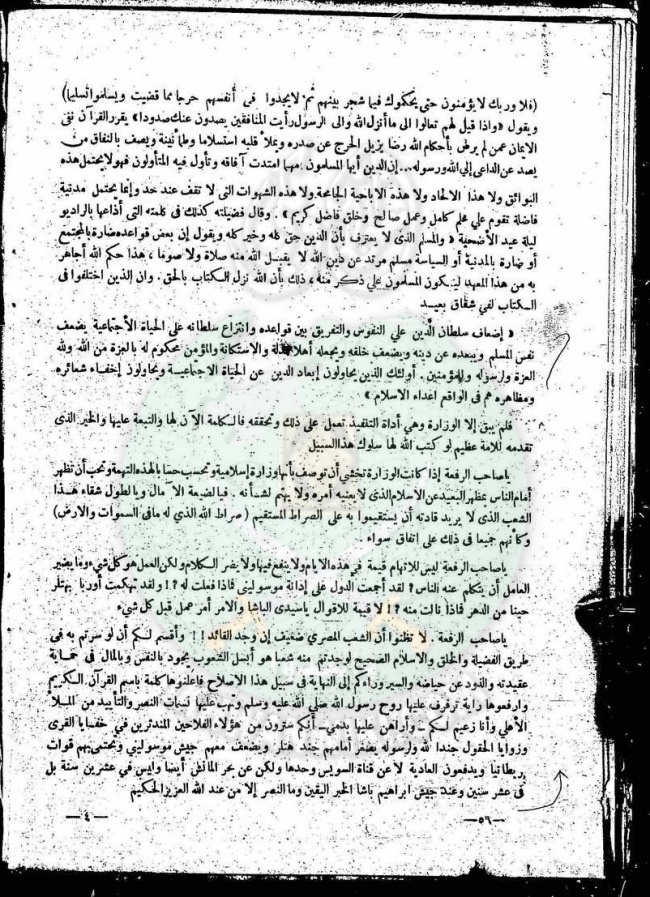 (فلا وربك لا يؤمنون حتى يحكموك فيما شجر بينهم ثم لايجدوا فى أنفسهم حرجا مما قضيت ويسلموا تسليما)
ويقول «واذا قيل لهم تعالوا الى ما أنزل الله والى الرسول رأيت المنافقين يصدون عنك صدودا» يقرر القرآن نفى
الايمان عمن لم يرض بأحكام الله رضا يزيل الحرج عن صدره ويملأ قلبه استسلاما وطمأنينة ويصف بالنفاق من
يصد عن الداعى إلى الله ورسوله... إن الدين أيها المسلمون مهما امتدت آفاقه وتأول فيه المتأولون فهو لا يحتمل هذه
البوائق ولا هذا الالحاد ولا هذه الاباحية الجامحة ولا هذه الشهوات التى لا تقف عند حد وإنما يحتمل مدنية
فاضلة تقوم علي علم كامل وعمل صالح وخلق فاضل كريم» . وقال فضيلته كذلك فى كلمته التى أذاعها بالراديو
ليلة عيد الأضحية «والمسلم الذى لا يعترف بأن الدين حق كله وخير كله ويقول إن بعض قواعده ضارة بالمجتمع
أو ضارة بالمدنية أو السياسة مسلم مرتد عن دين الله لا يقبل الله منه صلاة ولا صوما ، هذا حكم الله أجاهر
به من هذا المعهد ليكون المسلمون علي ذكر منه ، ذلك بأن الله نزل الكتاب بالحق . وان الذين اختلفوا فى
الكتاب لفي شقاق بعيد
« إضعاف سلطان الدين علي النفوس والتفريق بين قواعده وانتزاع سلطانه على الحياة الاجتماعية يضعف
نفس المسلم ويبعده عن دينه ويضعف خلقه ويجعله أهلا للذلة والاستكانة والمؤمن محكوم له بالعزة من الله ولله
العزة ولرسوله وللمؤمنين . أولئك الذين يحاولون إبعاد الدين عن الحياة الاجتماعية ويحاولون إخفاء شعائره
ومظاهره هم فى الواقع أعداء الاسلام »
فلم يبق إلا الوزارة وهي أداة التنفيذ تعمل على ذلك وتحققه فالكلمة الآن لها والتبعة عليها والخير الذى
تقدمه للأمة عظيم لو كتب الله لها سلوك هذا السبيل
ياصاحب الرفعة إذا كانت الوزارة تخشي أن توصف بأنها وزارة إسلامية وتحسب حسابا لهذه التهمة وتحب أن تظهر
أمام الناس بمظهر البعيد عن الاسلام الذى لا يعنيه أمره ولا يهتم لشأنه . فيالضيعة الآمال ويالطول شقاء هذا
الشعب الذى لا يريد قادته أن يستقيموا به على الصراط المستقيم (صراط الله الذي له مافى السموات والارض)
وكأنهم جميعا فى ذلك على اتفاق سواء .
ياصاحب الرفعة ليس للاتهام قيمة فى هذه الايام ولا ينفع فيها ولا يضر الكلام ولكن العمل هو كل شيء وما يضير
العامل أن يتكلم عنه الناس ? لقد أجمعت الدول على إدانة موسوليني فماذا فعلت له ? ! ولقد تهكمت أوربا بهتلر
حينا من الدهر فماذا نالت منه ? ! لا قيمة للاقوال ياسيدى الباشا والامر أمر عمل قبل كل شيء
ياصاحب الرفعة . لا تظنوا أن الشعب المصري ضعيف إن وجد القائد ! ! وأقسم لكم أن لو سرتم به فى
طريق الفضيلة والخلق والاسلام الصحيح لوجدتم منه شعبا هو أبسل الشعوب يجود بالنفس وبالمال فى حماية
عقيدته والذود عن حياضه والسير وراءكم إلى النهاية فى سبيل هذا الاصلاح فاعلنوها كلمة باسم القرآن الكريم
وارفعوها راية ترفرف عليها روح رسول الله صلي الله عليه وسلم وتهب عليها نسمات النصر والتأييد من الملأ
الأعلي وأنا زعيم لكم - وأراهن عليها بدمي - أنكم سترون من هؤلاء الفلاحين المندثرين في خفايا القرى
وزوايا الحقول جندا لله ولرسوله يصغر أمامهم جند هتلر ويضعف معهم جيش موسوليني وتحتمي بهم قوات
بريطانيا ويدفعون العادية لا عن قناة السويس وحدها ولكن عن بحر المانش أيضا وليس في عشرين سنة بل
فى عشر سنين وعند جيش ابراهيم باشا الخبر اليقين وما النصر إلا من عند الله العزيز الحكيم
—٥٦—
—٤—